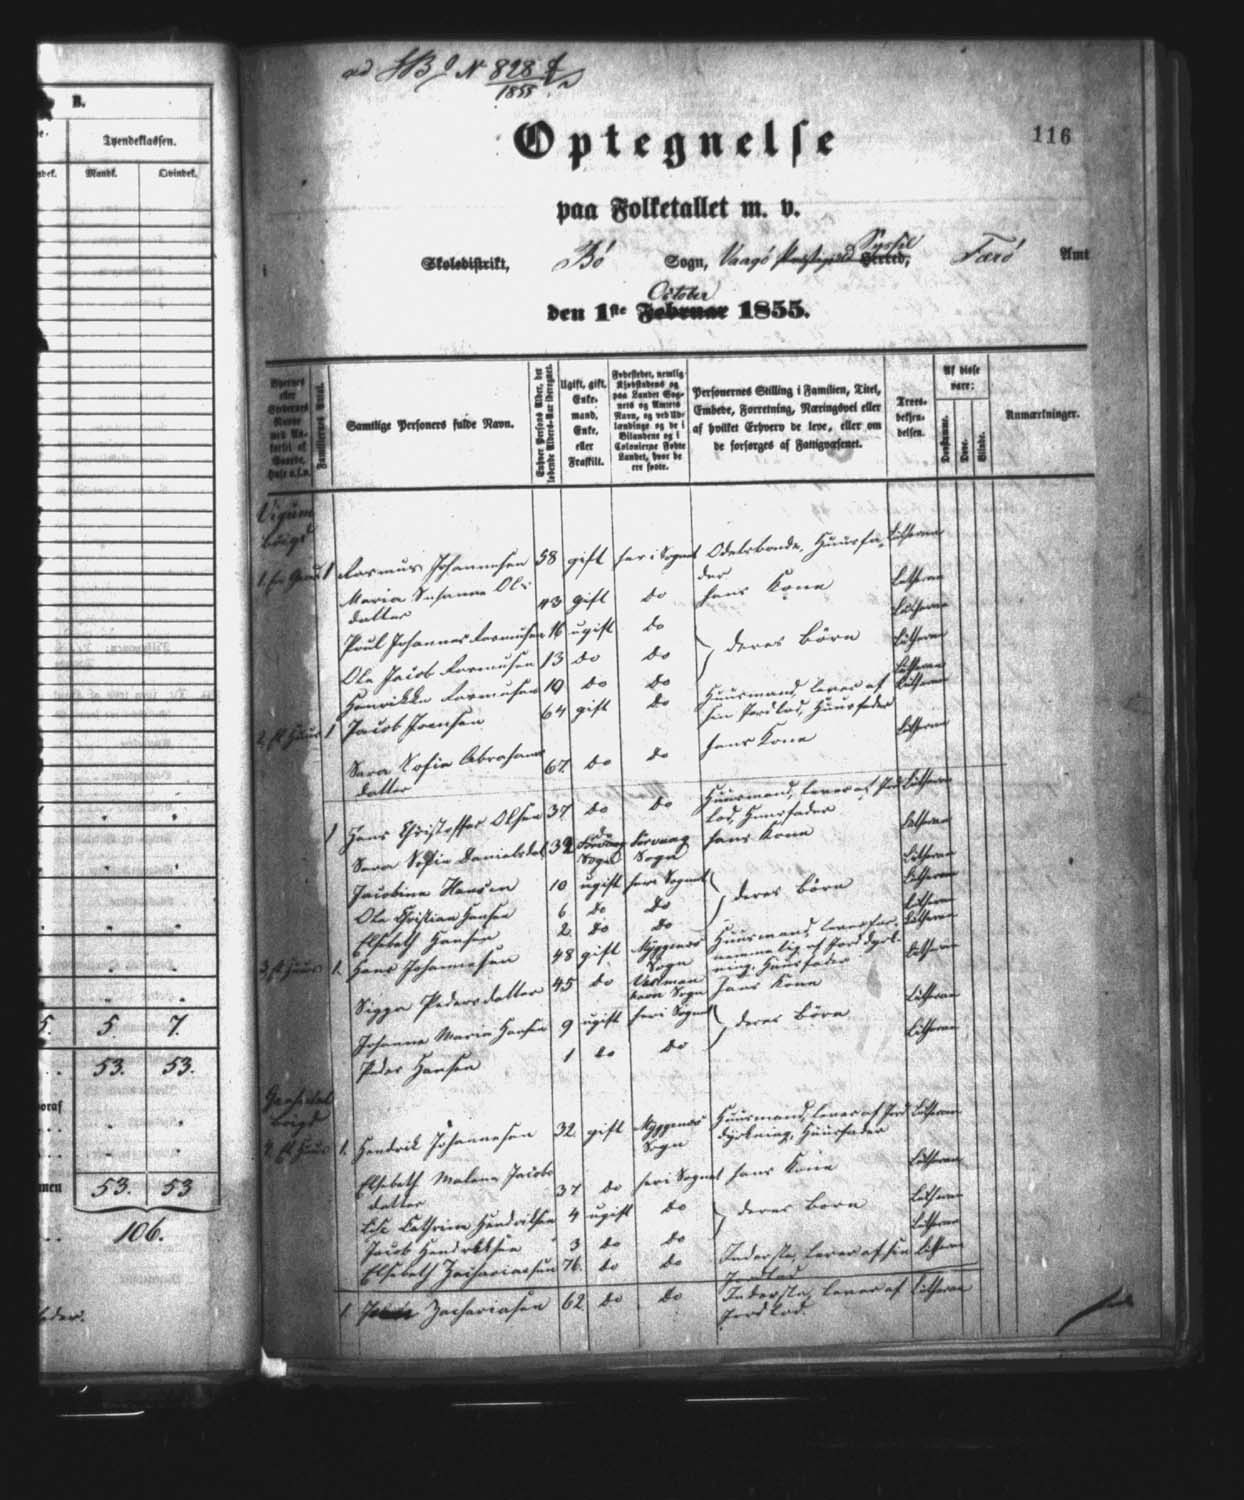 B.
Tyendeklassen.
Mandk. Qvindek.
5. 5. 7.
53. 53.
53. 53
106.
ad N 828
1855
116
Optegnelse
paa Folketallet m. v.
Skoledistrikt, Bö Sogn, Vaagö Præstegield Syssel Herred, Færö Amt
October
den 1ste Februar 1855.
Byernes eller Gaardenes Navne
Familiernes Antal.
Samtlige Personers fulde Navn.
Enhver Persons Alder, det løbende Alders-Aar iberegnet.
Ugift, gift, Enkemand, Enke, eller Fraskilt.
Fødestedet, nemlig Kjøbstadens og paa Landet Sognets og Amtets Navn, og ved Udlændinge og de i Bilandene og i Colonierne Fødte Landet, hvor de ere fødte.
Personernes Stilling i Familien, Titel, Embede, Forretning, Næringsvei eller af hvilket Erhverv de leve, eller om de forsørges af Fattigvæsenet.
Troesbekjendelsen.
Af disse vare:
Døvstumme. Døve. Blinde.
Anmærkninger.
1 Rasmus Johannesen 58 gift her i Sognet Odelsbonde, Huusfader Lutheran
Maria Susanna Ols datter 43 gift do hans Kone Lutheran
Poul Johannes Rasmusen 16 ugift do Lutheran
Ole Jacob Rasmusen 13 do do deres Börn Lutheran
Henrikke Rasmusen 10 do do Lutheran
2 Huus 1 Jacob Joensen 64 gift do Huusmand, lever af sin Jordlod, Huusfader Lutheran
Sara Sofie Abrahams datter 67 do do hans Kone Lutheran
1 Hans Christoffer Olsen 37 do do Huusmand, lever af Jordlod, Huusfader Lutheran
Sara Sofie Danielsdatter 32 do Sörvaag Sogn hans Kone Lutheran
Jacobine Hansen 10 ugift her i Sognet Lutheran
Ole Christian Hansen 6 do do deres Börn Lutheran
Elsebeth Hansen 2 do do Lutheran
3 Huus 1. Hans Johannesen 48 gift Myggenæs Sogn Huusmand, lever fornemmelig af Jorddyrkning, Huusfader Lutheran
Sigga Pedersdatter 45 do Vestmanhavn Sogn hans Kone Lutheran
Johanne Maria Hansen 9 ugift her i Sognet deres Börn Lutheran
Peder Hansen 1 do do Lutheran
Huus 1. Hendrik Johannesen 32 gift Myggenæs Sogn Huusmand, lever af Jorddyrkning, Huusfader Lutheran
Elsebeth Malene Jacobsdatter 37 do her i Sognet hans Kone Lutheran
Cathrine Hendriksen 4 ugift do deres Börn Lutheran
Jacob Hendriksen 3 do do Lutheran
Elsebeth Zachariasen 76 do do Inderste, lever af sin Jordlod Lutheran
1. Zachariasen 62 do do Inderste, lever af Jordlod. Lutheran